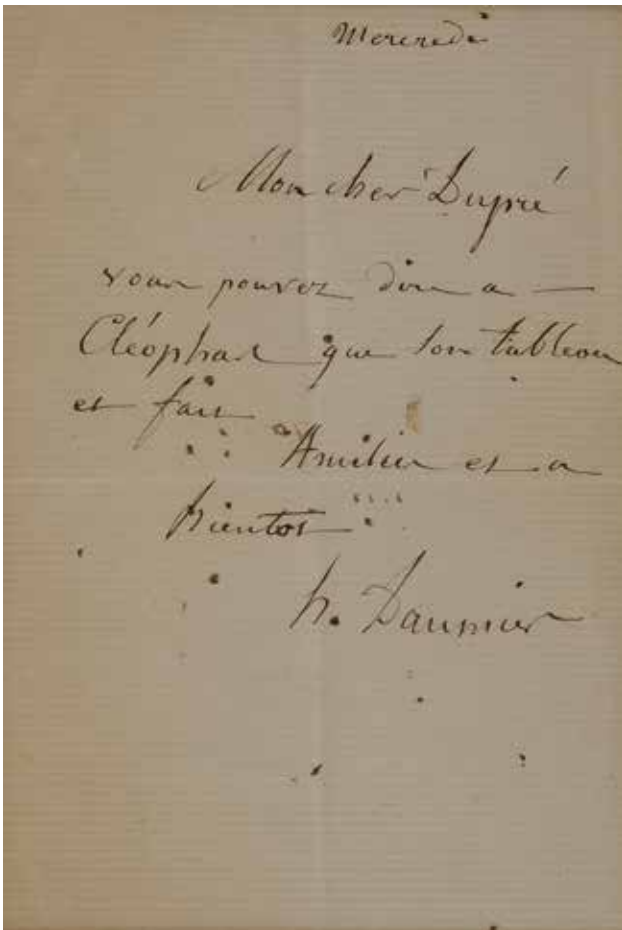 Mercredi
Mon cher Dupré
vous pouvez dire a —
Cléophas que son tableau
et fait
Amitiés et a
bientot
h. Daumier